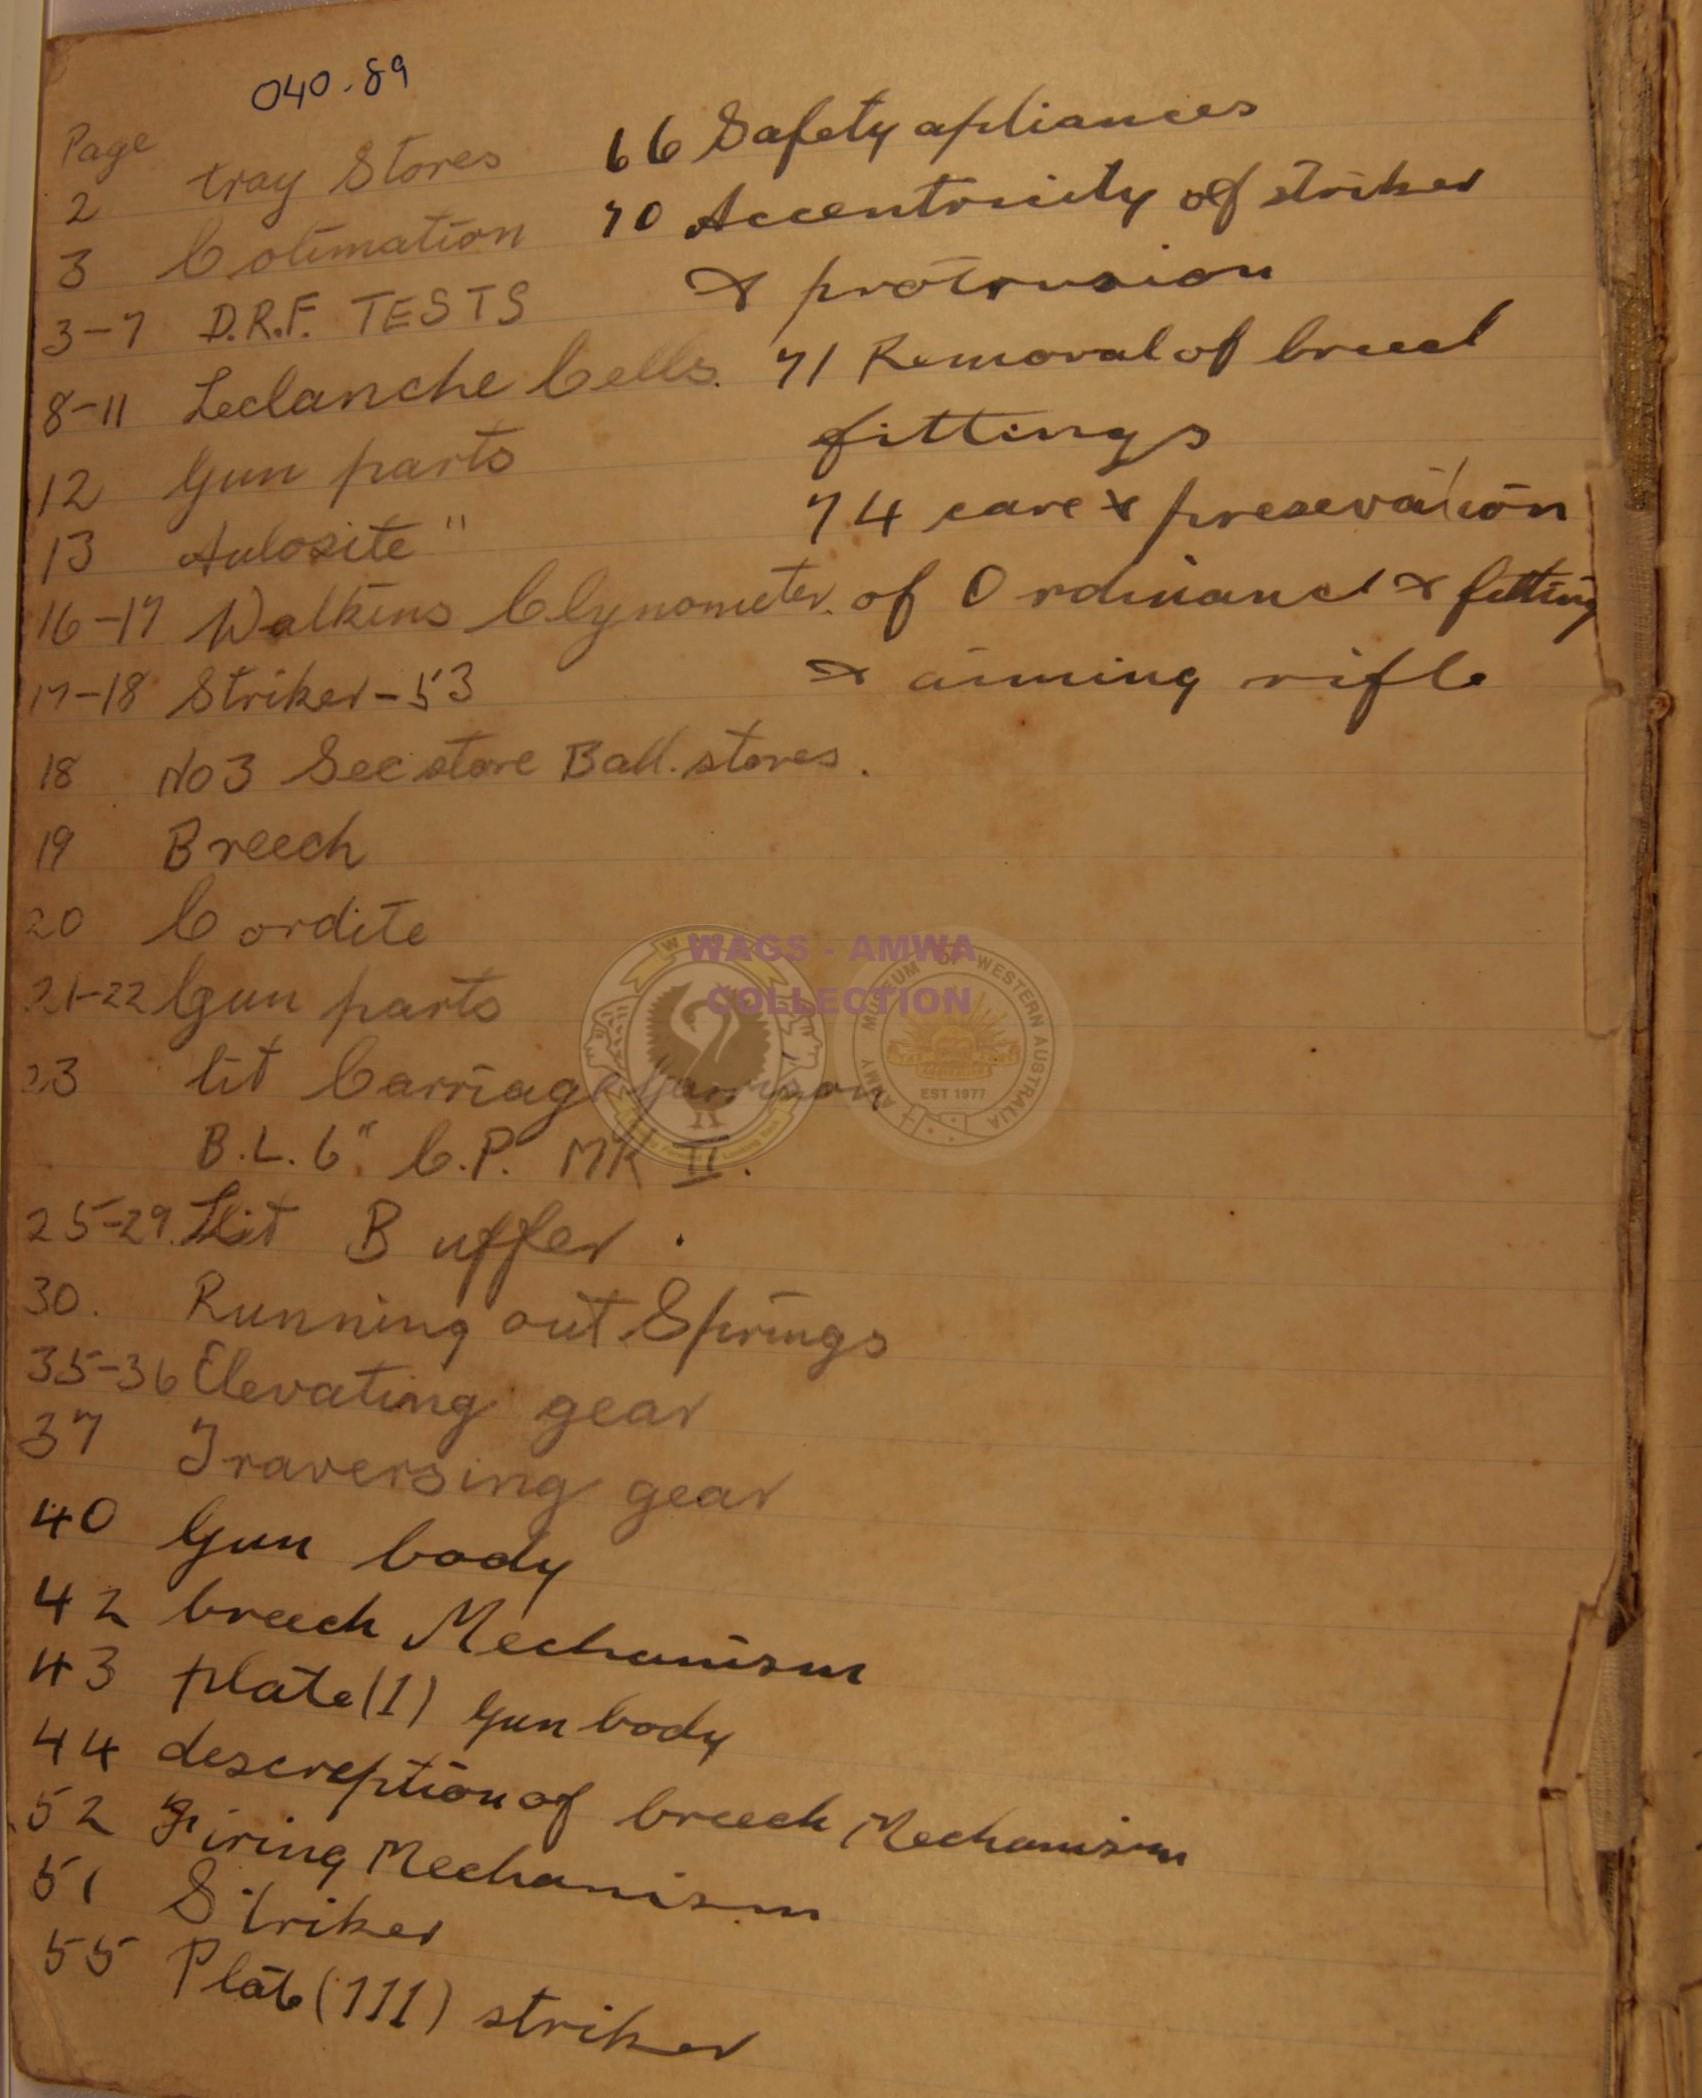 040.89
Page
2 tray Stores
3 Colimation
3-7 D.R.F. TESTS
8-11 Leclanche Cells.
12 Gun parts
13 Autosite "
16-17 Watkins Clynometer.
17-18 Striker-53
18 No 3 Sec store Ball. stores.
19 Breech
20 Cordite
21-22 Gun parts
23 tit Carriage Garrison
B.L. 6". C.P. MK II.
25-29. tit Buffer.
30. Running out Springs
35-36 Elevating gear
37 Traversing gear
40 Gun body
42 breech Mechanism
43 plate (1) Gun body
44 descreption of breech Mechanism
52 Firing Mechanism
51 Striker
55 Plate (111) striker
66 Safety apliances
70 Accentricity of striker
& protrusion
71 Removal of breech
fittings
74 care & presevation
of Ordinance & fitting
& aiming rifle
WAGS - AMWA
COLLECTION
ARMY MUSEUM OF WESTERN AUSTRALIA
EST 1977